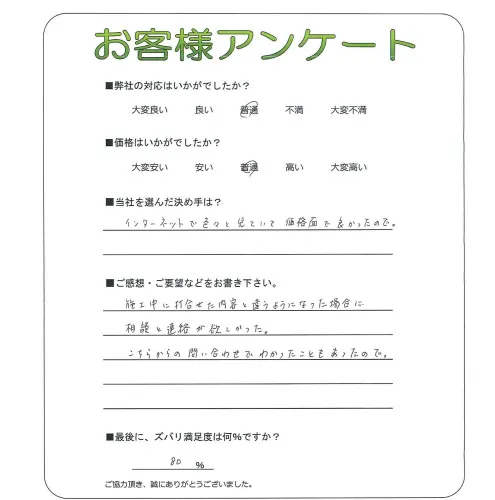 お客様アンケート
■弊社の対応はいかがでしたか？
大変良い 良い 普通 不満 大変不満
■価格はいかがでしたか？
大変安い 安い 普通 高い 大変高い
■当社を選んだ決め手は？
インターネットで色々と見ていて価格面で良かったので。
■ご感想・ご要望などをお書き下さい。
施工中に打合せた内容と違うようになった場合に
相談と連絡が欲しかった。
こちらからの問い合わせでわかったこともあったので。
■最後に、ズバリ満足度は何％ですか？
80 ％
ご協力頂き、誠にありがとうございました。